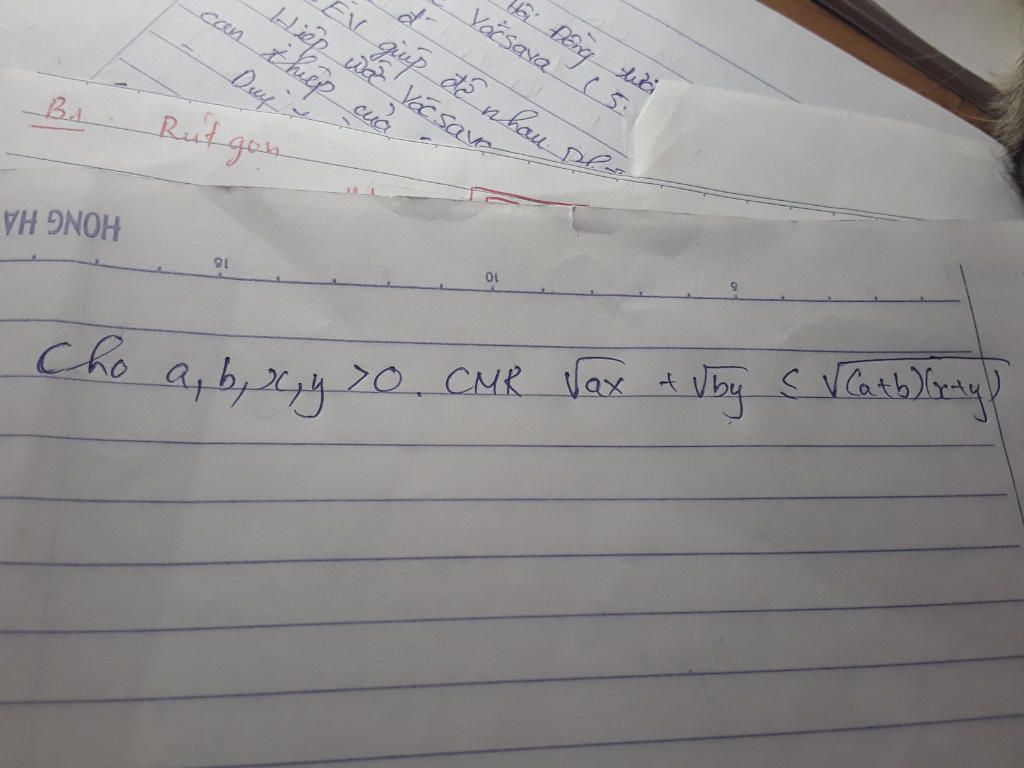 Hội Đồng
Vácsava ( 5.
EV giúp đỡ nhau
Hiệp ước Vácsava
can thiệp của
Duy
B1 Rút gọn
HONG HA
15 10 5
Cho a, b, x, y > 0. CMR √ax + √by ≤ √(a+b)(x+y)